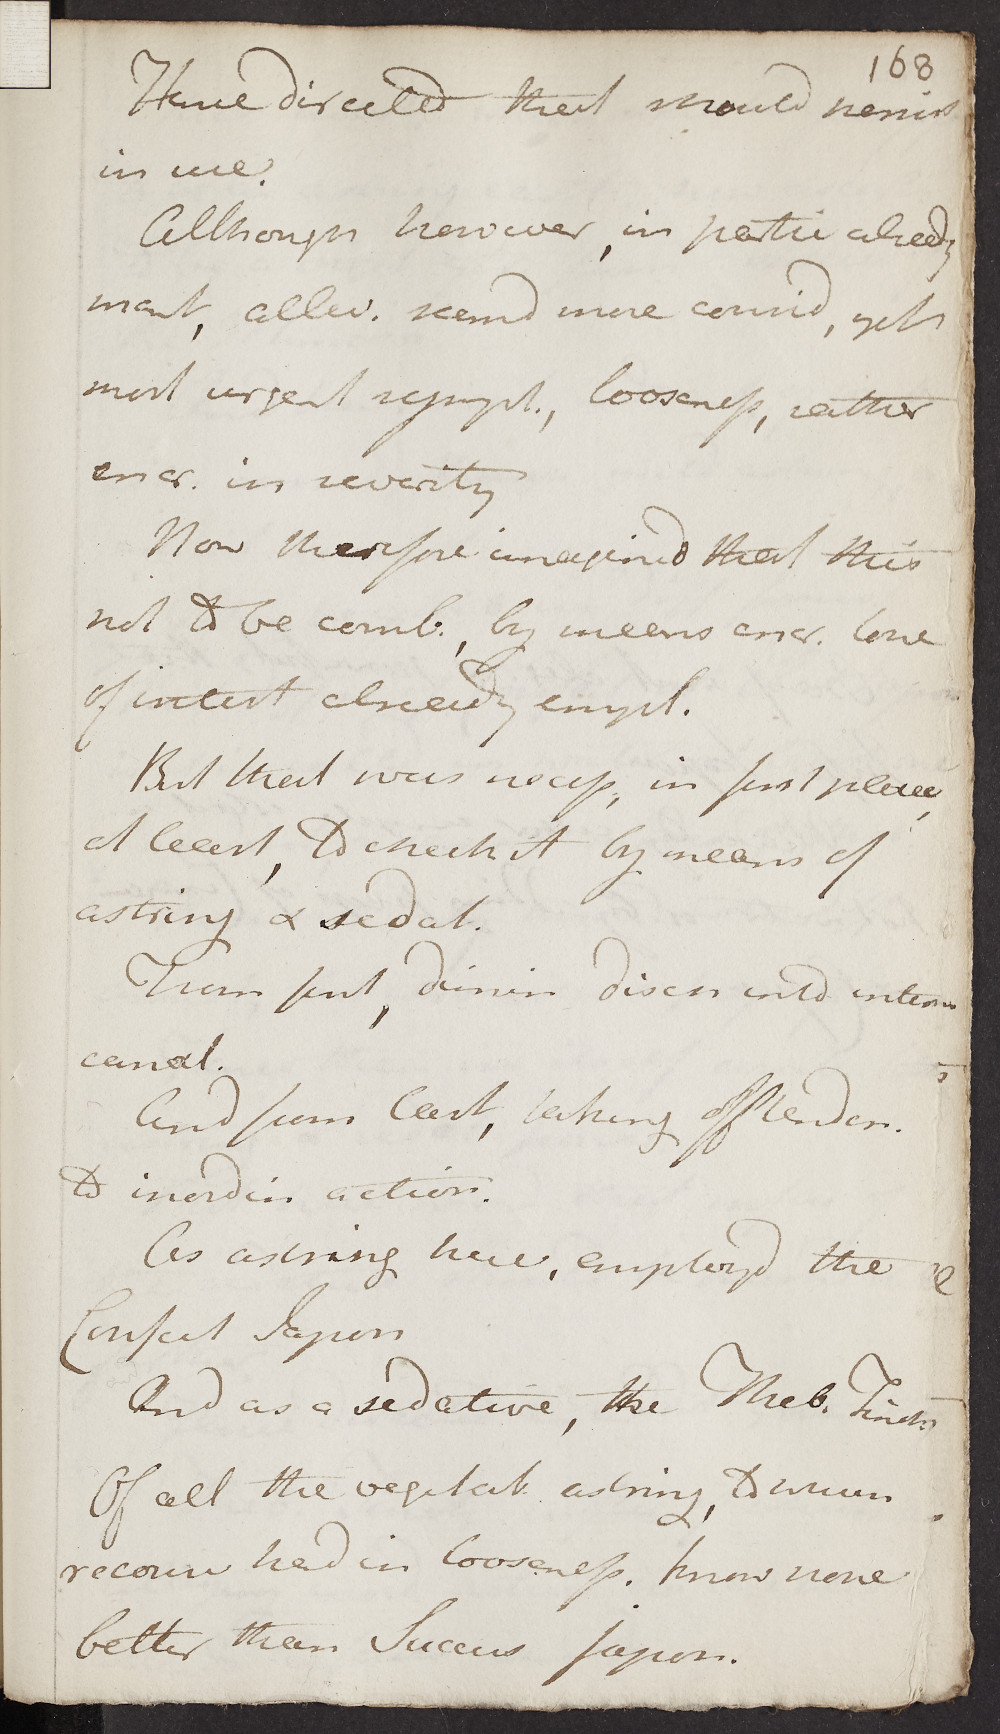 168
Have directed that should persist
in use.
Although however, in partic already
ment, allev. seemd more consid, yet
most urgent sympt., looseness, rather
encr. in severity
Now therefore imagined that this
not to be comb., by means encr. tone
of intest already empl.
But that was necess, in first place,
at least, to check it by means of
astring & sedat.
From first, dimin disch into intestin
canal.
And from last, taking off tenden.
to inordin action.
As astring here, employd the
Confect Japon
And as a sedative, the Theb. Tinct
Of all the vegetab. astring, to whom
recourse had in looseness. know none
better than Succus Japon.